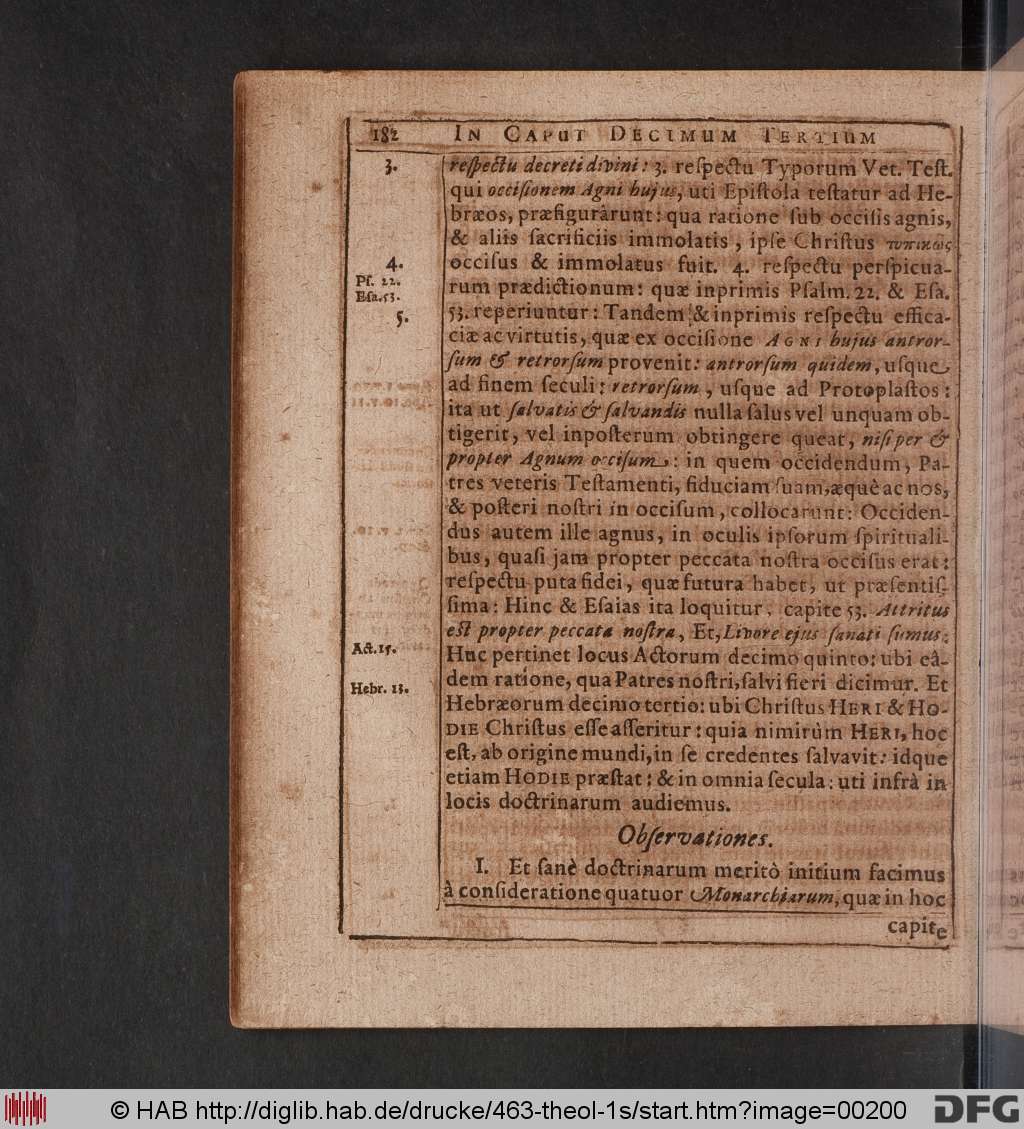 182 IN CAPUT DECIMUM TERTIUM
3.
reſpectu decreti divini: 3. reſpectu Typorum Vet. Teſt.
qui occiſionem Agni hujus, uti Epiſtola teſtatur ad He-
bræos, præfigurârunt: qua ratione ſub occiſis agnis,
& aliis ſacrificiis immolatis, ipſe Chriſtus τυπικῶς
4.
occiſus & immolatus fuit. 4. reſpectu perſpicua-
Pſ. 22.
rum prædictionum: quæ inprimis Pſalm. 22. & Eſa.
Eſa. 53.
5.
53. reperiuntur: Tandem & inprimis reſpectu effica-
ciæ ac virtutis, quæ ex occiſione AGNI hujus antror-
ſum & retrorſum provenit: antrorſum quidem, uſque
ad finem ſeculi: retrorſum, uſque ad Protoplaſtos:
ita ut ſalvatis & ſalvandis nulla ſalus vel unquam ob-
tigerit, vel inpoſterum obtingere queat, niſi per &
propter Agnum occiſum: in quem occidendum, Pa-
tres veteris Teſtamenti, fiduciam ſuam, æquè ac nos,
& poſteri noſtri in occiſum, collocarunt: Occiden-
dus autem ille agnus, in oculis ipſorum ſpirituali-
bus, quaſi jam propter peccata noſtra occiſus erat:
reſpectu puta fidei, quæ futura habet, ut præſentiſ-
ſima: Hinc & Eſaias ita loquitur, capite 53. Attritus
eſt propter peccata noſtra, Et, Livore ejus ſanati ſumus.
Act. 15.
Huc pertinet locus Actorum decimo quinto: ubi eâ-
dem ratione, qua Patres noſtri, ſalvi fieri dicimur. Et
Hebr. 13.
Hebræorum decimo tertio: ubi Chriſtus HERI & HO-
DIE Chriſtus eſſe aſſeritur: quia nimirùm HERI, hoc
eſt, ab origine mundi, in ſe credentes ſalvavit: idque
etiam HODIE præſtat: & in omnia ſecula: uti infrà in
locis doctrinarum audiemus.
Obſervationes.
I. Et ſanè doctrinarum meritò initium facimus
à conſideratione quatuor Monarchiarum, quæ in hoc
capite
© HAB http://diglib.hab.de/drucke/463-theol-1s/start.htm?image=00200 DFG